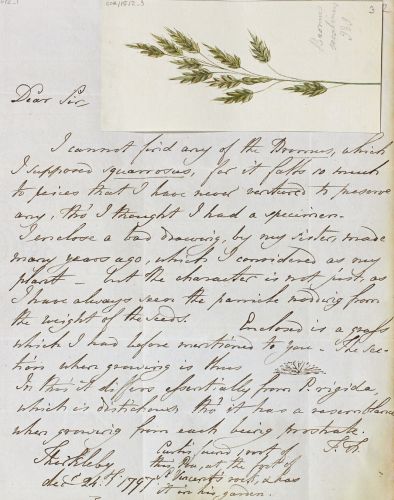 COR/1812_3
3 2
Bromus
secalinus
Dear Sir
I cannot find any of the Bromus, which
I supposed squarrosus, for it falls so much
to peices that I have never ventured to preserve
any, tho' I thought I had a specimen.
I enclose a bad drawing, by my sister, made
many years ago, which I considered as my
plant – but the character is not just, as
I have always seen the pannicle nodding from
the weight of the seeds. Enclosed is a grass
which I had before mentioned to you – The sec-
tion when growing is thus
In this it differs essentially from P. rigida,
which is distichous, tho' it has a resemblance
when growing from each being prostrate.
Curtis found root of
this Poa, at the foot of
St Vincent's rock, & has
it in his garden.
Thirkleby
decr 24th. 1797